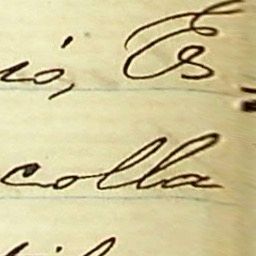 ió, Es
colla